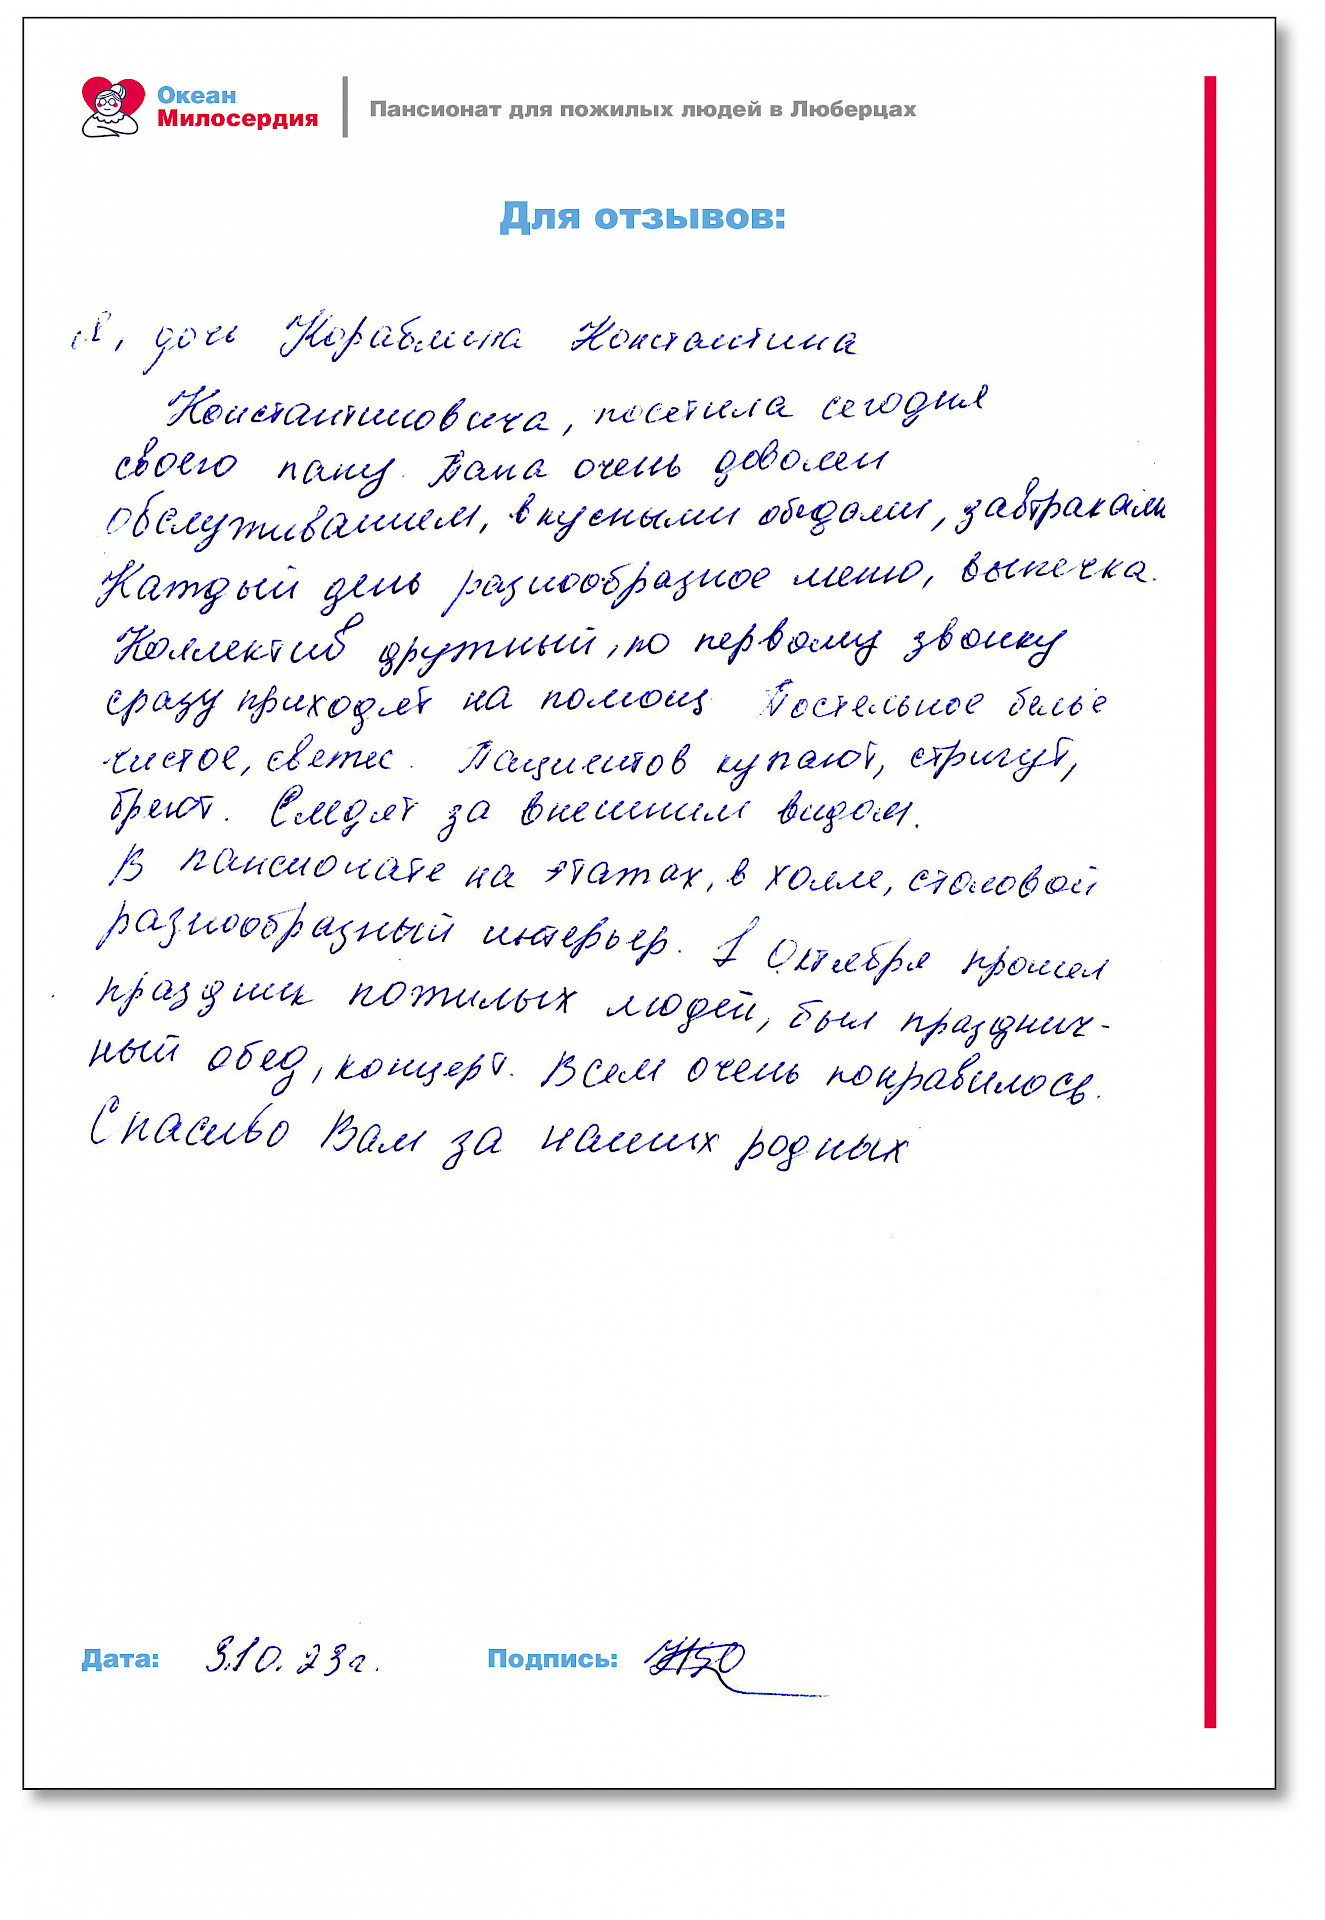 Океан
Милосердия
Пансионат для пожилых людей в Люберцах
Для отзывов:
Я, дочь Кораблина Константина
Константиновича, посетила сегодня
своего папу. Папа очень доволен
обслуживанием, вкусными обедами, завтраками
Каждый день разнообразное меню, выпечка.
Коллектив дружный, по первому звонку
сразу приходят на помощ Постельное белье
чистое, свежее. Пациентов купают, стригут,
бреют. Следят за внешним видом.
В пансионате на этажах, в холле, столовой
разнообразный интерьер. 1 Октября прошел
праздник пожилых людей, был празднич-
ный обед, концерт. Всем очень понравилось.
Спасибо Вам за наших родных
Дата: 3.10.23г. Подпись: